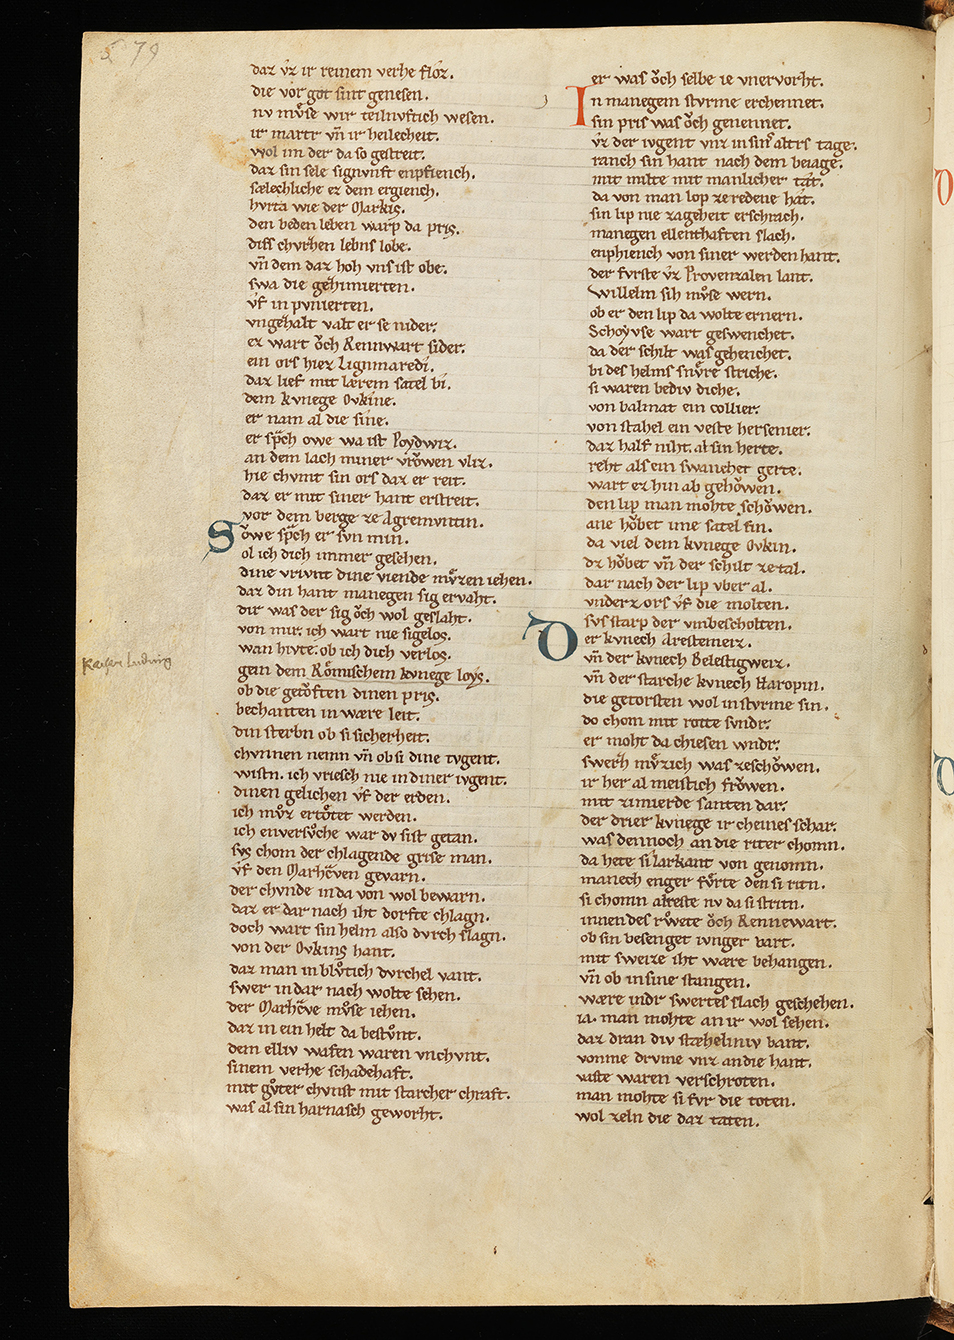 579
daz vͤz ir reinem verhe floz.
die vor got sint genesen.
nv mvͦse wir teilnvftich wesen.
ir martr vn̄ ir heilecheit.
wol im der da so gestreit.
daz sin sele signvnft enpfiench.
sælechliche ez dem ergiench.
hvrta wie der Markis.
den beden leben warp da pris.
diss chvrhen lebns lobe.
vn̄ dem daz hoh vns ist obe.
swa die gehimierten.
vf in pvnierten.
vngehalt valt er se nider.
ez wart oͮch Rennwart sider.
ein ors hiez Lignmaredi.
daz lief mit lærem satel bi.
dem kvnege Ovkine.
er nam al die sine.
er sp̄ch owe wa ist Poydwiz.
an dem lach miner vroͮwen vliz.
hie chvmt sin ors daz er reit.
daz er mit siner hant erstreit.
vor dem berge ze Agremvntin.
owe sp̄ch er svn min.
Sol ich dich immer gesehen.
dine vrivnt dine viende mvͤzen iehen.
daz din hant manegen sig ervaht.
dir was der sig oͮch wol geslaht.
von mir. ich wart nie sigelos.
wan hivte. ob ich dich verlos.
gein dem Roͤmischem kvnege loys.
ob die getoͮften dinen pris.
bechanten in wære leit.
Kaiser Ludwig
din sterbn ob si sicherheit.
chvnnen nemn vn̄ ob si dine tvgent.
wistn. ich vriesch nie in diner ivgent.
dinen gelichen vf der erden.
ich mvͦz ertoͤtet werden.
ich enversvͦche war dv sist getan.
svs chom der chlagende grise man.
vf den Marheͣven gevarn.
der chvnde in da von wol bewarn.
daz er dar nach iht dorfte chlagn.
doch wart sin helm also dvrch slagn.
von der Ovkins hant.
daz man in blvͦtich dvrchel vant.
swer in dar nach wolte sehen.
der Marheͣve mvͦse iehen.
daz in ein helt da bestvͦnt.
dem elliv wafen waren vnchvnt.
sinem verhe schadehaft.
mit gvͦter chvnst mit starcher chraft.
was al sin harnasch geworht.
er was oͮch selbe ie vnervorht.
In manegem stvrme erchennet.
sin pris was oͮch genennet.
vͤz der ivgent vnz in sinˢ altrs tage.
ranch sin hant nach dem beiage.
mit milte mit manlicher tat.
da von man lop ze redene hat.
sin lip nie zageheit erschrach.
manegen ellenthaften slach.
enphiench von siner werden hant.
der fvrste vͤz Provenzalen lant.
Willelm sih mvͦse wern.
ob er den lip da wolte ernern.
Schoyvse wart geswenchet.
da der schilt was gehenchet.
bi des helms snvͤre striche.
si waren bediv diche.
von balmat ein collier.
von stahel ein veste hersenier.
daz half niht. al sin herte.
reht als ein swanchet gerte.
wart ez hin ab gehoͮwen.
den lip man mohte schoͮwen.
ane hoͮbet ime satel sin.
da viel dem kvnege Ovkin.
dz hoͮbet vn̄ der schilt ze tal.
dar nach der lip vber al.
vnderz ors vf die molten.
svs starp der vnbescholten.
Der kvnech Arestemeiz.
vn̄ der kvnech Belestigweiz.
vn̄ der starche kvnech Haropin.
die getorsten wol in stvrme sin.
do chom mit rotte svndr.
er moht da chiesen wndr.
swerh mvͦzich was zeschoͮwen.
ir her al meistich froͮwen.
mit zimierde santen dar.
der drier kvnege ir cheines schar.
was dennoch an die riter chomn.
da hete si larkant von genomn.
manech enger fvͦrte den si ritn.
si chomn alreste nv da si stritn.
innen des rvͦwete oͮch Rennewart.
ob sin besenget ivnger bart.
mit sweize iht wære behangen.
vn̄ ob in sine stangen.
wære indr swertes slach geschehen.
ia. man mohte an ir wol sehen.
daz dran div stæheliniv bant.
vonme drvme vnz an die hant.
vaste waren verschroten.
man mohte si fvr die toten.
wol zeln die daz taten.